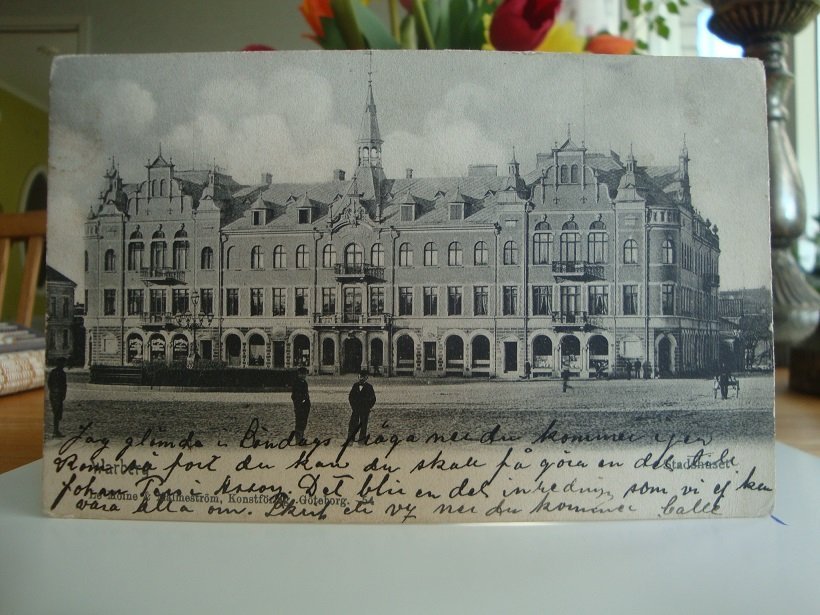 Jag glömde i Söndags fråga när du kommer igen
Kom så fort du kan du skall få göra en del till
Johan i Det blir en del inredning som vi ej kan
vara alla om. Skrif ett när du kommer Calle
Warberg
Stadshuset
Le Moine & Malmeström, Konstförlag, Göteborg.